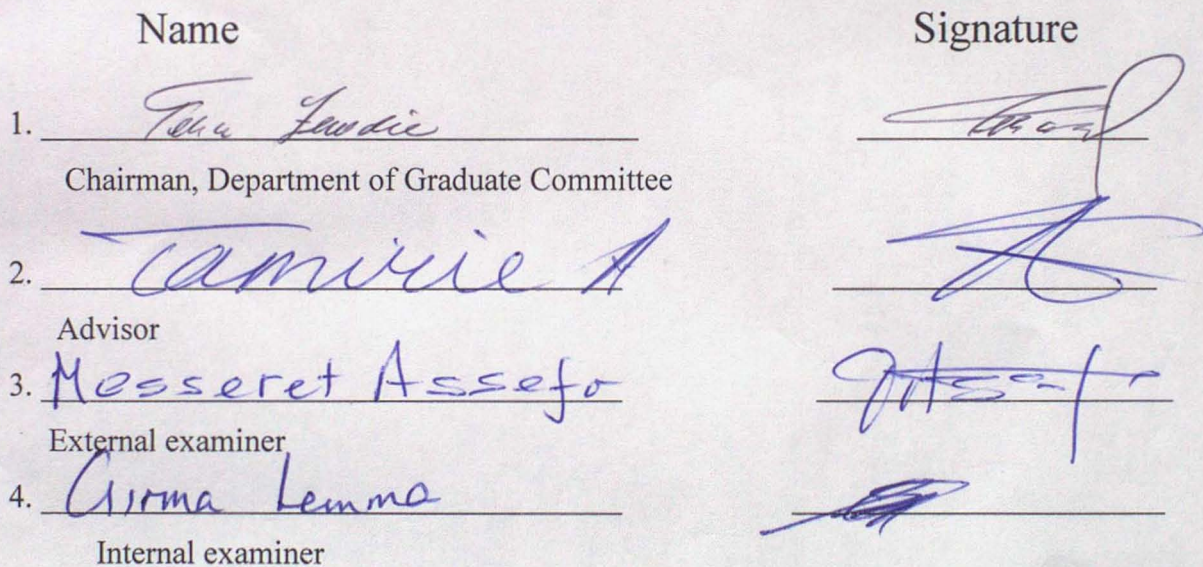 Name Signature
1.
Chairman, Department of Graduate Committee
2. Tamirie A
Advisor
3. Messeret Assefa
External examiner
4. Girma Lemma
Internal examiner